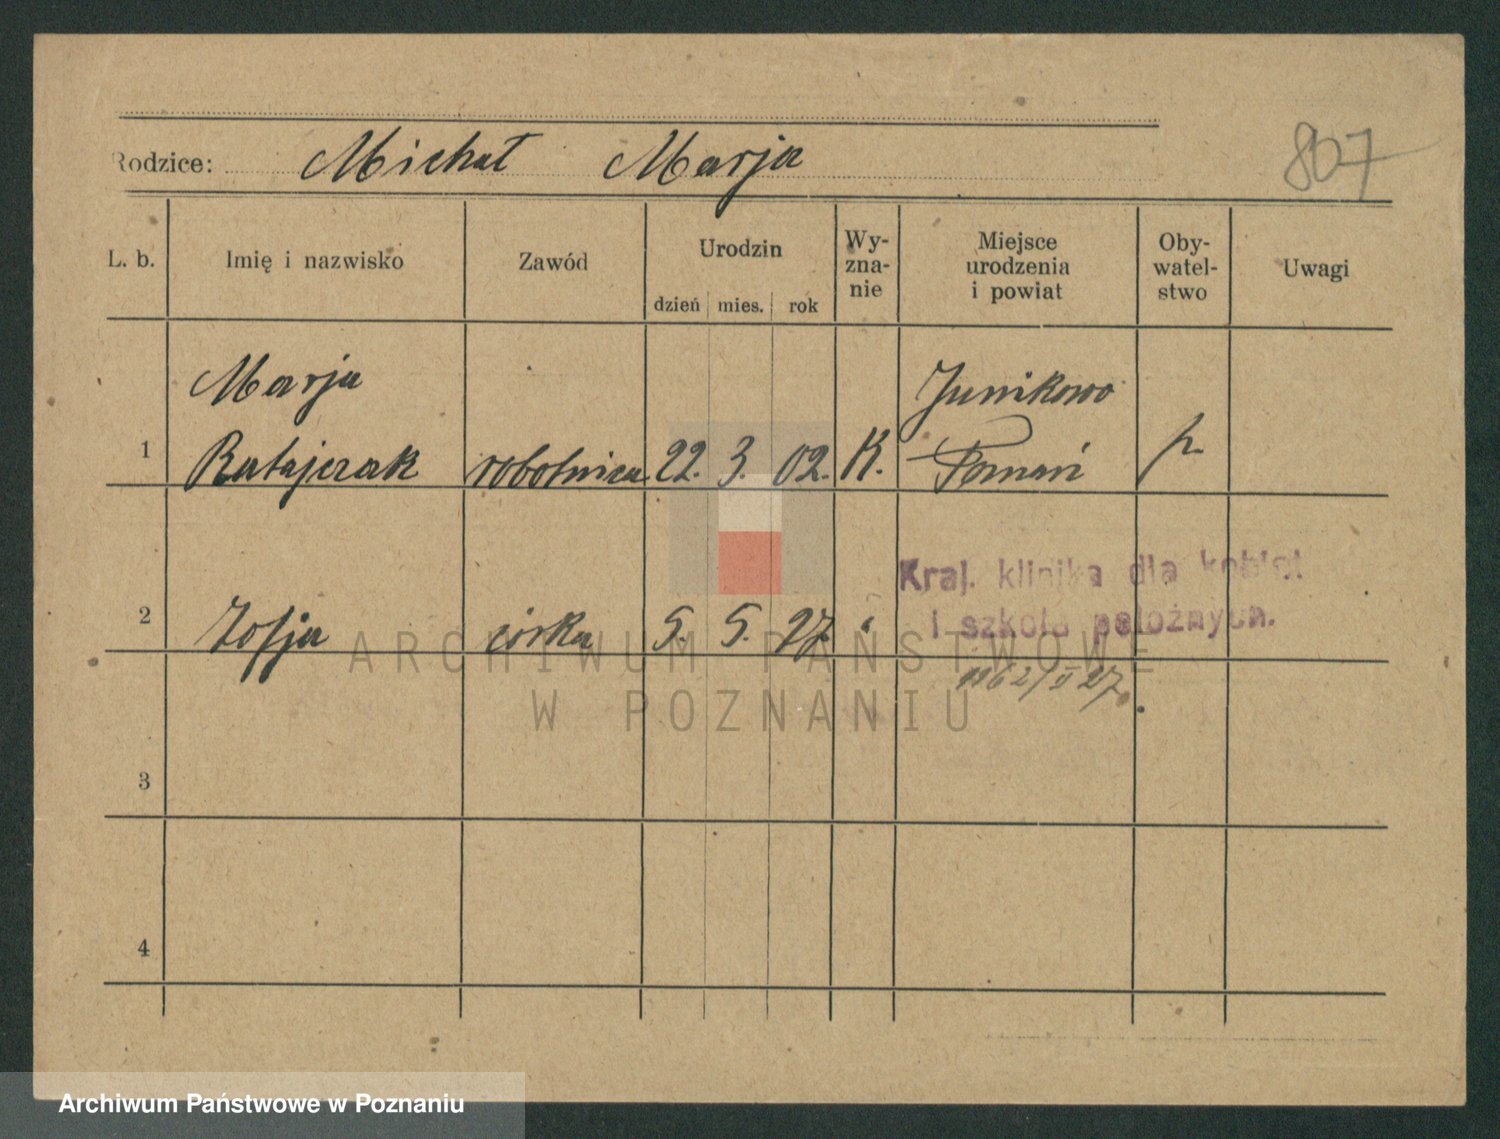 Rodzice: Michał Marja
807
L. b. Imię i nazwisko Zawód Urodzin Wy-
zna-
nie Miejsce
urodzenia
i powiat Oby-
watel-
stwo Uwagi
dzień mies. rok
Marja Junikowo
1 Ratajczak robotnica 22. 3. 02. K. Poznań p.
Kraj. klinika dla kobiet
i szkoła położnych.
2 Zofja córka 5. 5. 27. "
1162/II 27.
3
4
ARCHIWUM PAŃSTWOWE
W POZNANIU
Archiwum Państwowe w Poznaniu